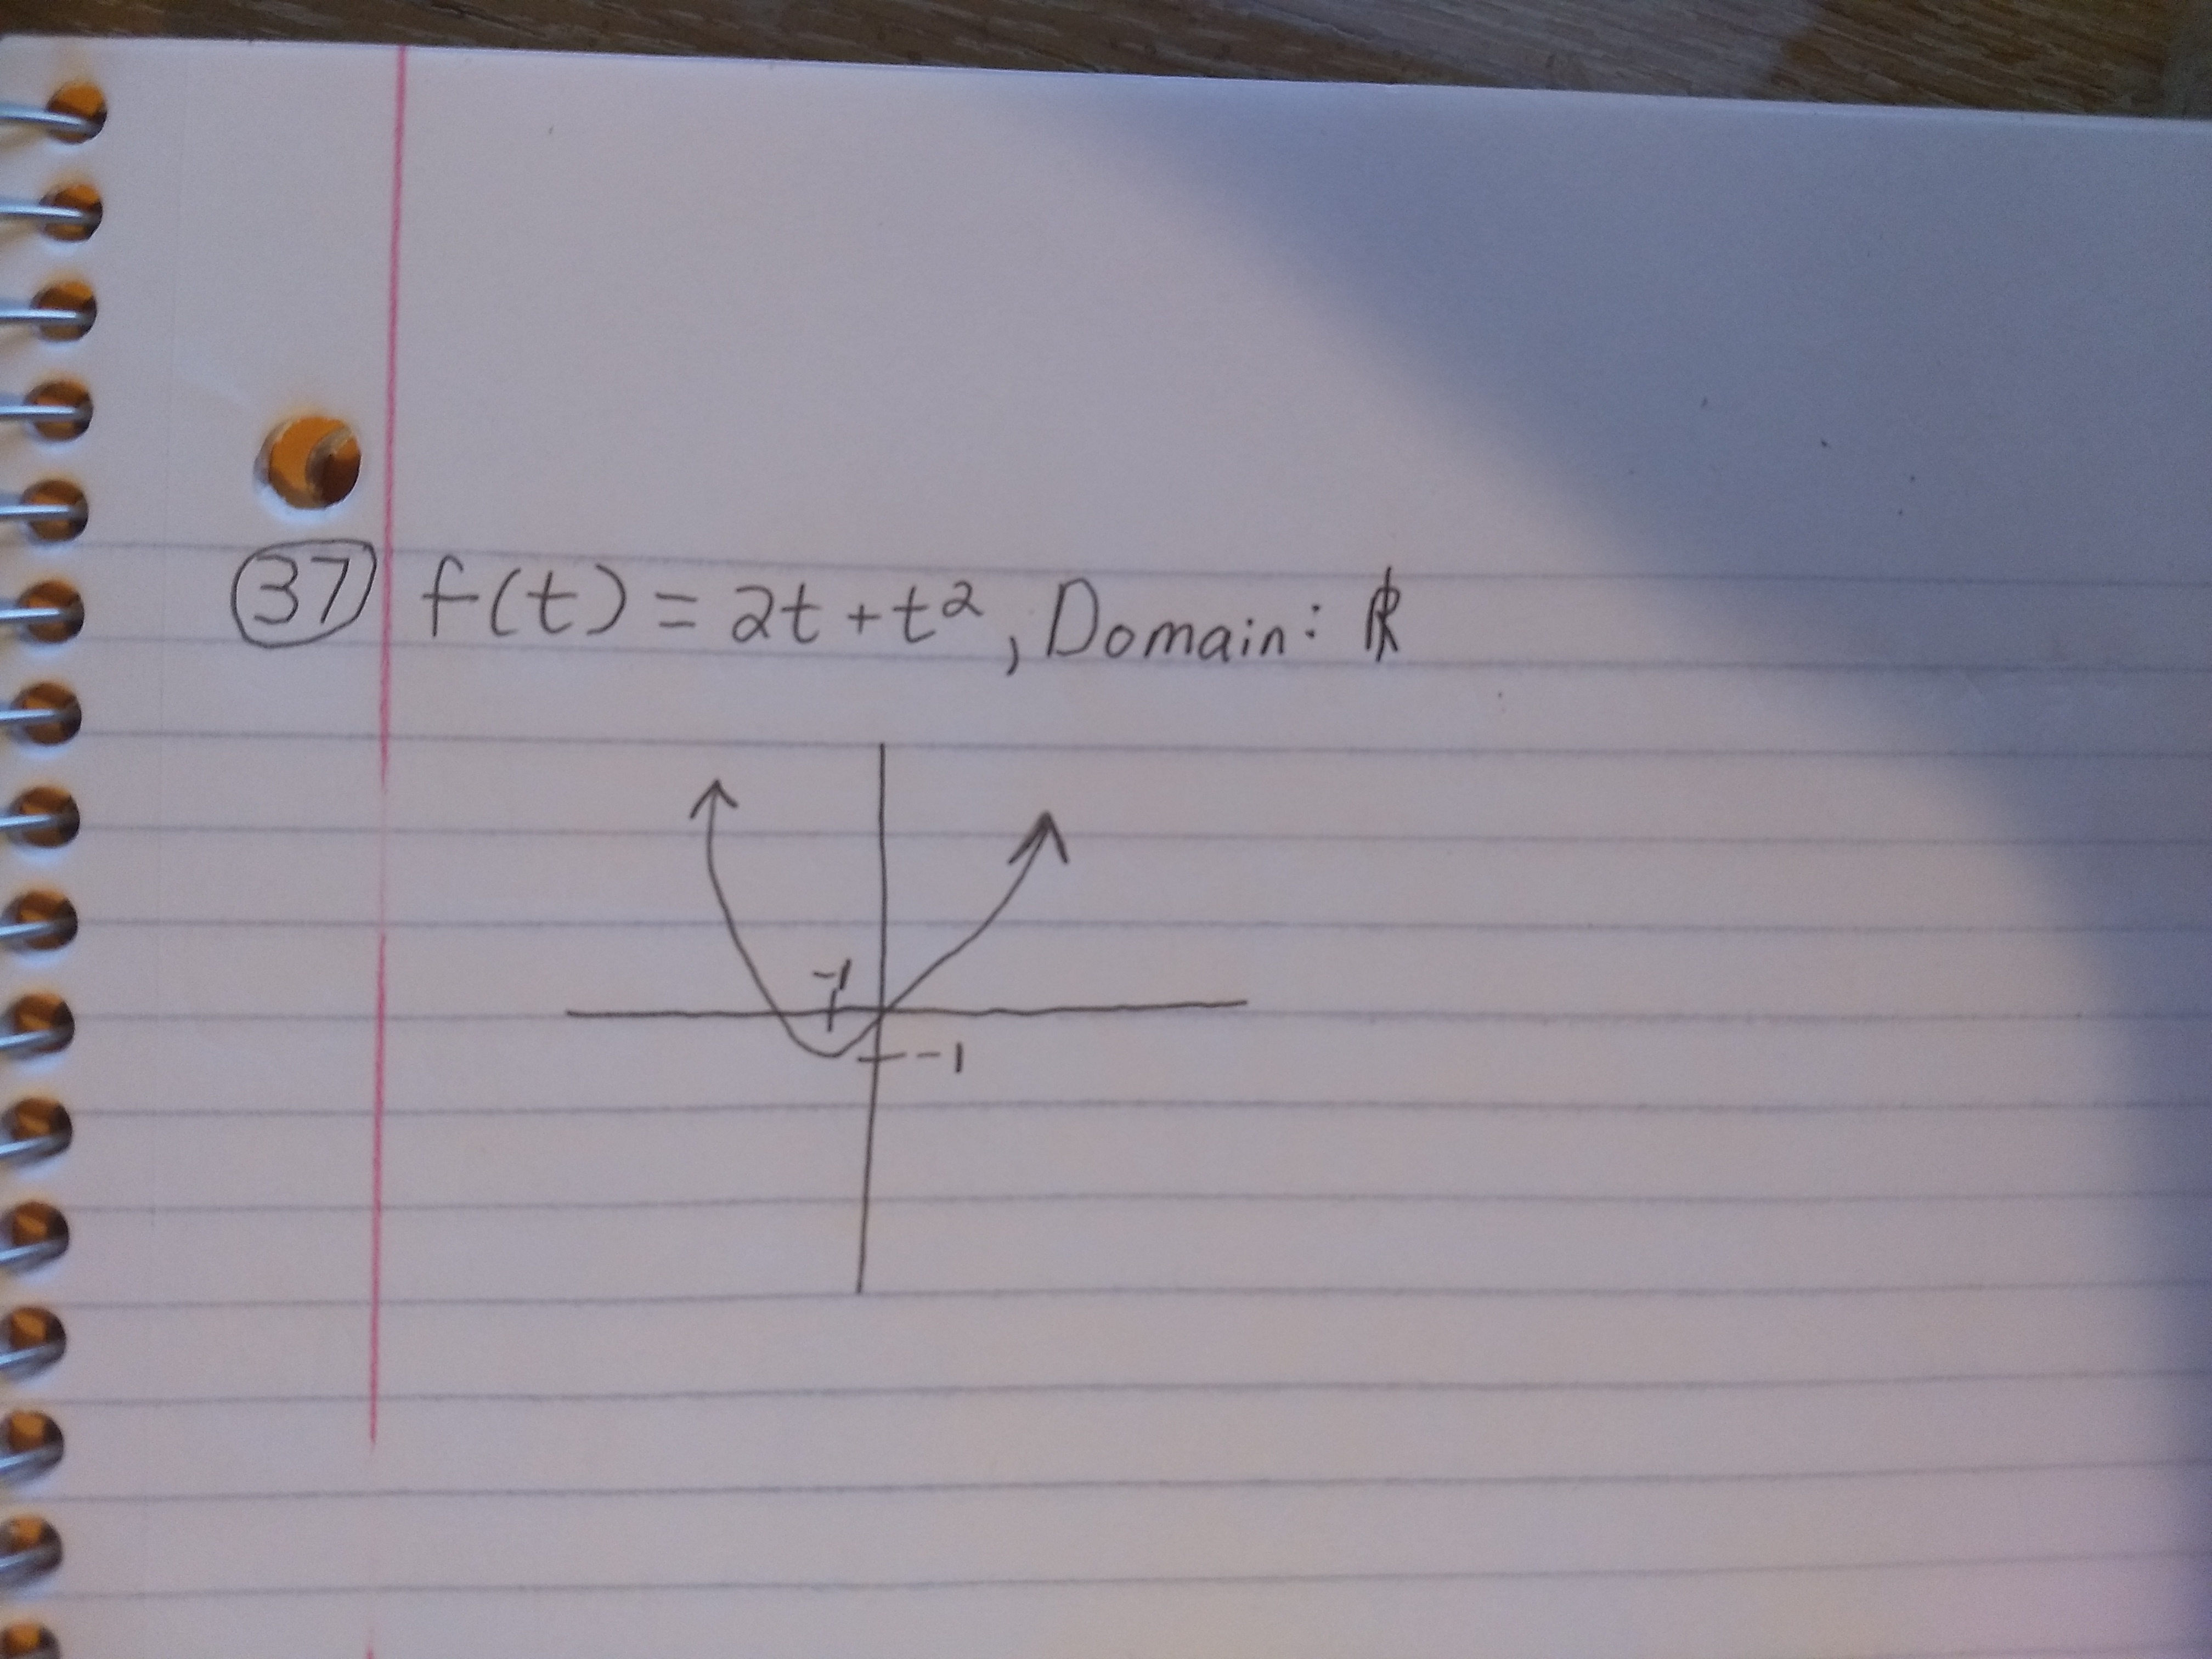 37 f(t) = 2t + t², Domain: ℝ
-1
-1